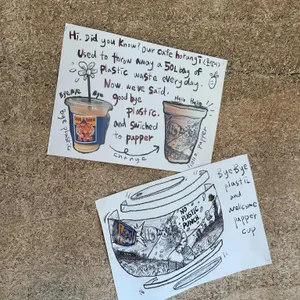 Hi. Did you know? Our cafe horangi
Used to throw away a 50L bag of
plastic waste every day.
Now, we've said.
good bye
plastic.
and swiched
to papper
bye bye
Hello Hello
change
NO
PLASTIC
PLANET
Bye Bye
plastic
and
wellcome
papper
cup